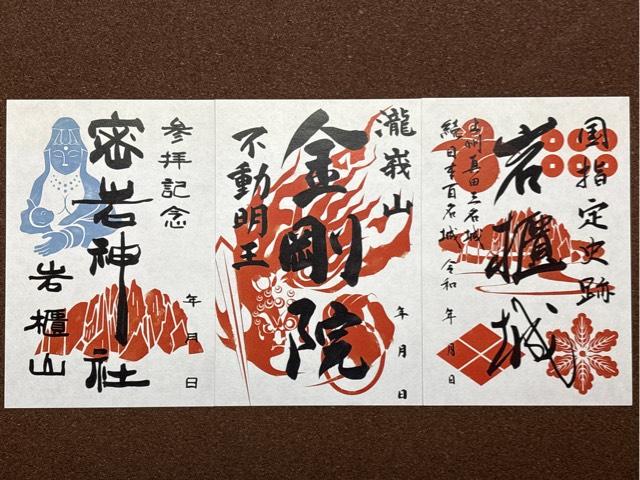 国指定史跡
岩櫃城
上州真田三名城
続日本百名城 令和 年 月 日
瀧峩山
金剛院
不動明王
年 月 日
参拝記念
密岩神社
岩櫃山
年 月 日